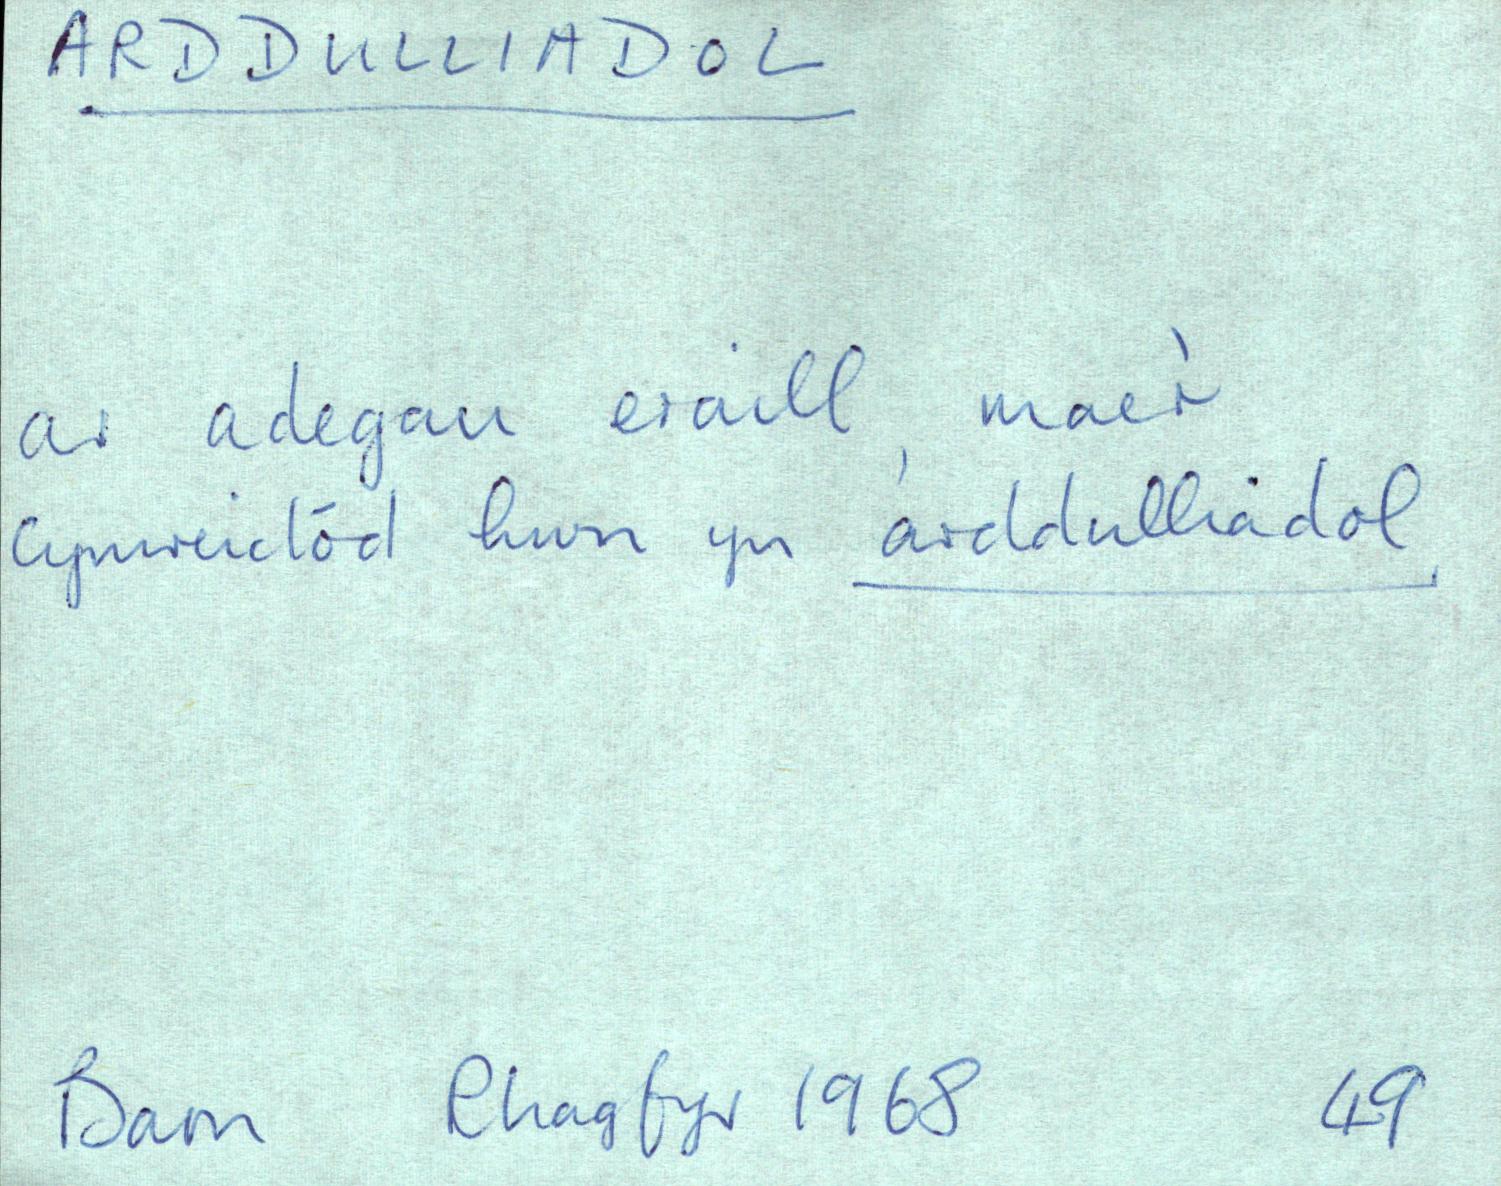 ARDDULLIADOL
ar adegau eraill, mae'r
Cymreictod hwn yn arddulliadol
Barn Rhagfyr 1968 49